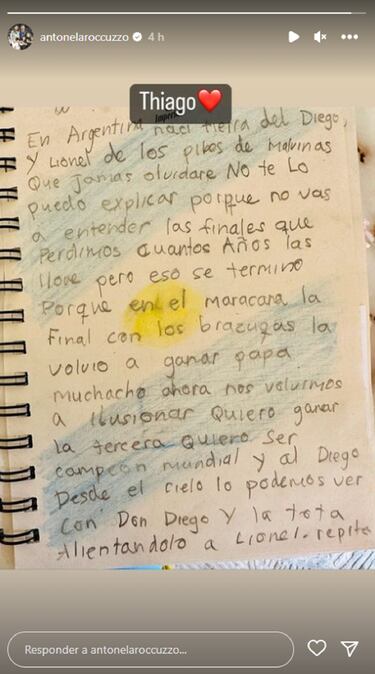 antonelaroccuzzo 4 h
Thiago❤️
En Argentina naci tierra del Diego,
Y Lionel de los pibes de Malvinas
Que jamas olvidare No te Lo
puedo explicar porque no vas
a entender las finales que
Perdimos cuantos Años las
llore pero eso se termino
Porque en el maracana la
Final con los brazucas la
volvio a ganar papa
muchacho ahora nos volvimos
a ilusionar Quiero ganar
la tercera Quiero ser
campeon mundial y al Diego
Desde el cielo lo podemos ver
con Don Diego Y la tota
Alientandolo a Lionel. repite
Responder a antonelaroccuzzo...